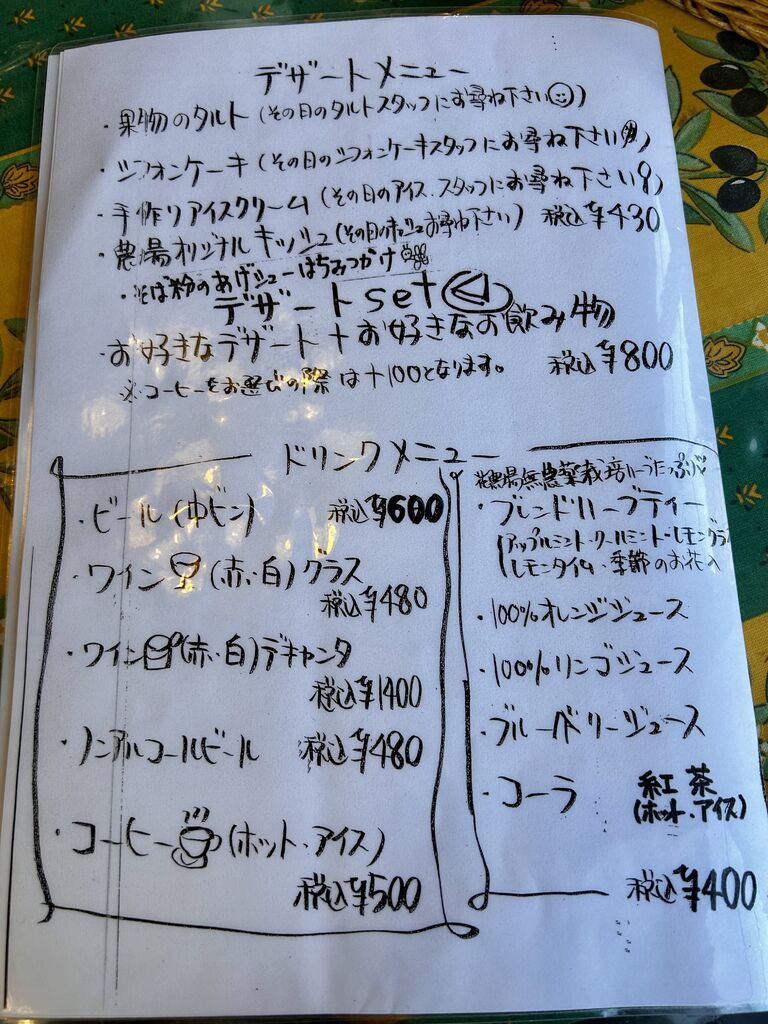 デザートメニュー
・果物のタルト (その日のタルトスタッフにお尋ね下さい)
・シフォンケーキ (その日のシフォンケーキスタッフにお尋ね下さい)
・手作りアイスクリーム (その日のアイス、スタッフにお尋ね下さい)
・農場オリジナルキッシュ (その日のキッシュお尋ね下さい) 税込¥430
・そば粉のあげシュー はちみつかけ
デザートset
・お好きなデザート+お好きなお飲み物
税込¥800
※コーヒーをお選びの際は+100となります。
ドリンクメニュー
・ビール (中ビン) 税込¥600
・ワイン (赤・白) グラス
税込¥480
・ワイン (赤・白) デキャンタ
税込¥1400
・ノンアルコールビール 税込¥480
・コーヒー (ホット・アイス)
税込¥500
農場無農薬栽培ハーブたっぷり♡
・ブレンドハーブティー
(アップルミント・クールミント・レモングラス
レモンタイム・季節のお花入
・100%オレンジジュース
・100%リンゴジュース
・ブルーベリージュース
・コーラ 紅茶
(ホット・アイス)
税込¥400